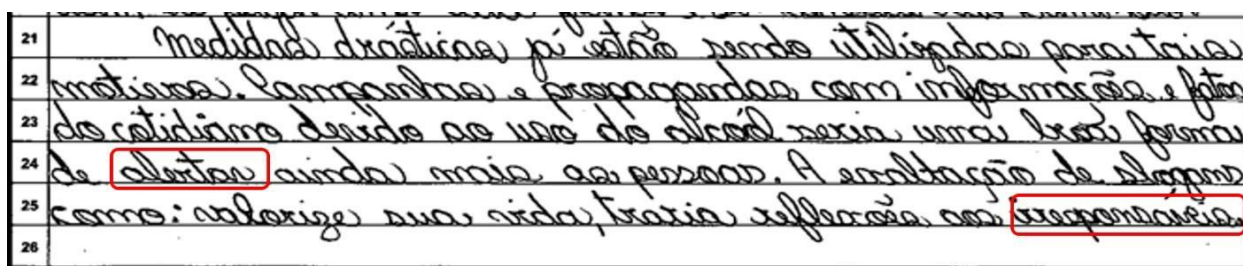 21 Medidas drásticas já estão sendo utilizadas para tais
22 motivos. Campanhas e propagandas com informações e fatos
23 do cotidiano devido ao uso do alcóol seria uma boa forma
24 de alertar ainda mais as pessoas. A exaltação de slogans
25 como: valorize sua vida, traria reflexões aos
26